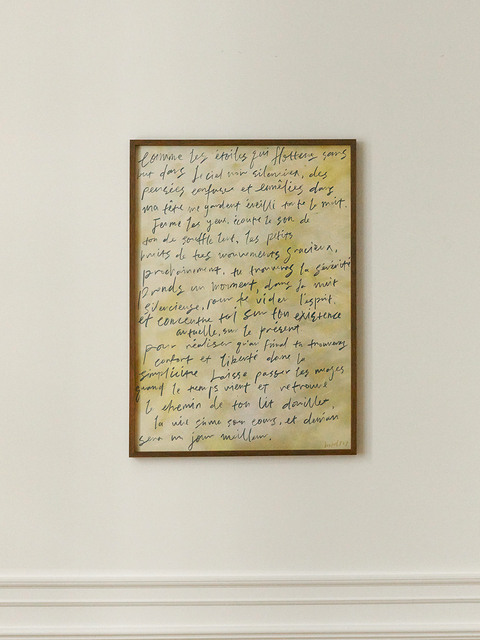 Comme les étoiles qui flottens sans
but dans le ciel noir silencieux, des
pensées confuses et emmêlées dans
ma tête me gardent éveillé toute la nuit.
Ferme les yeux, écoute le son de
ton souffle lent, les petits
bruits de tes mouvements gracieux,
prochainement, tu trouveras la sérénité
Prends un moment, dans la nuit
silencieuse, pour te vider l'esprit.
et concentre toi sur ton existence
actuelle, sur le présent
pour réaliser qu'au final tu trouveras
confort et liberté dans la
simplicité Laisse passer les nuages
quand le temps vient et retrouve
le chemin de ton lit douillet,
la vie suive son cours, et demain
sera un jour meilleur.